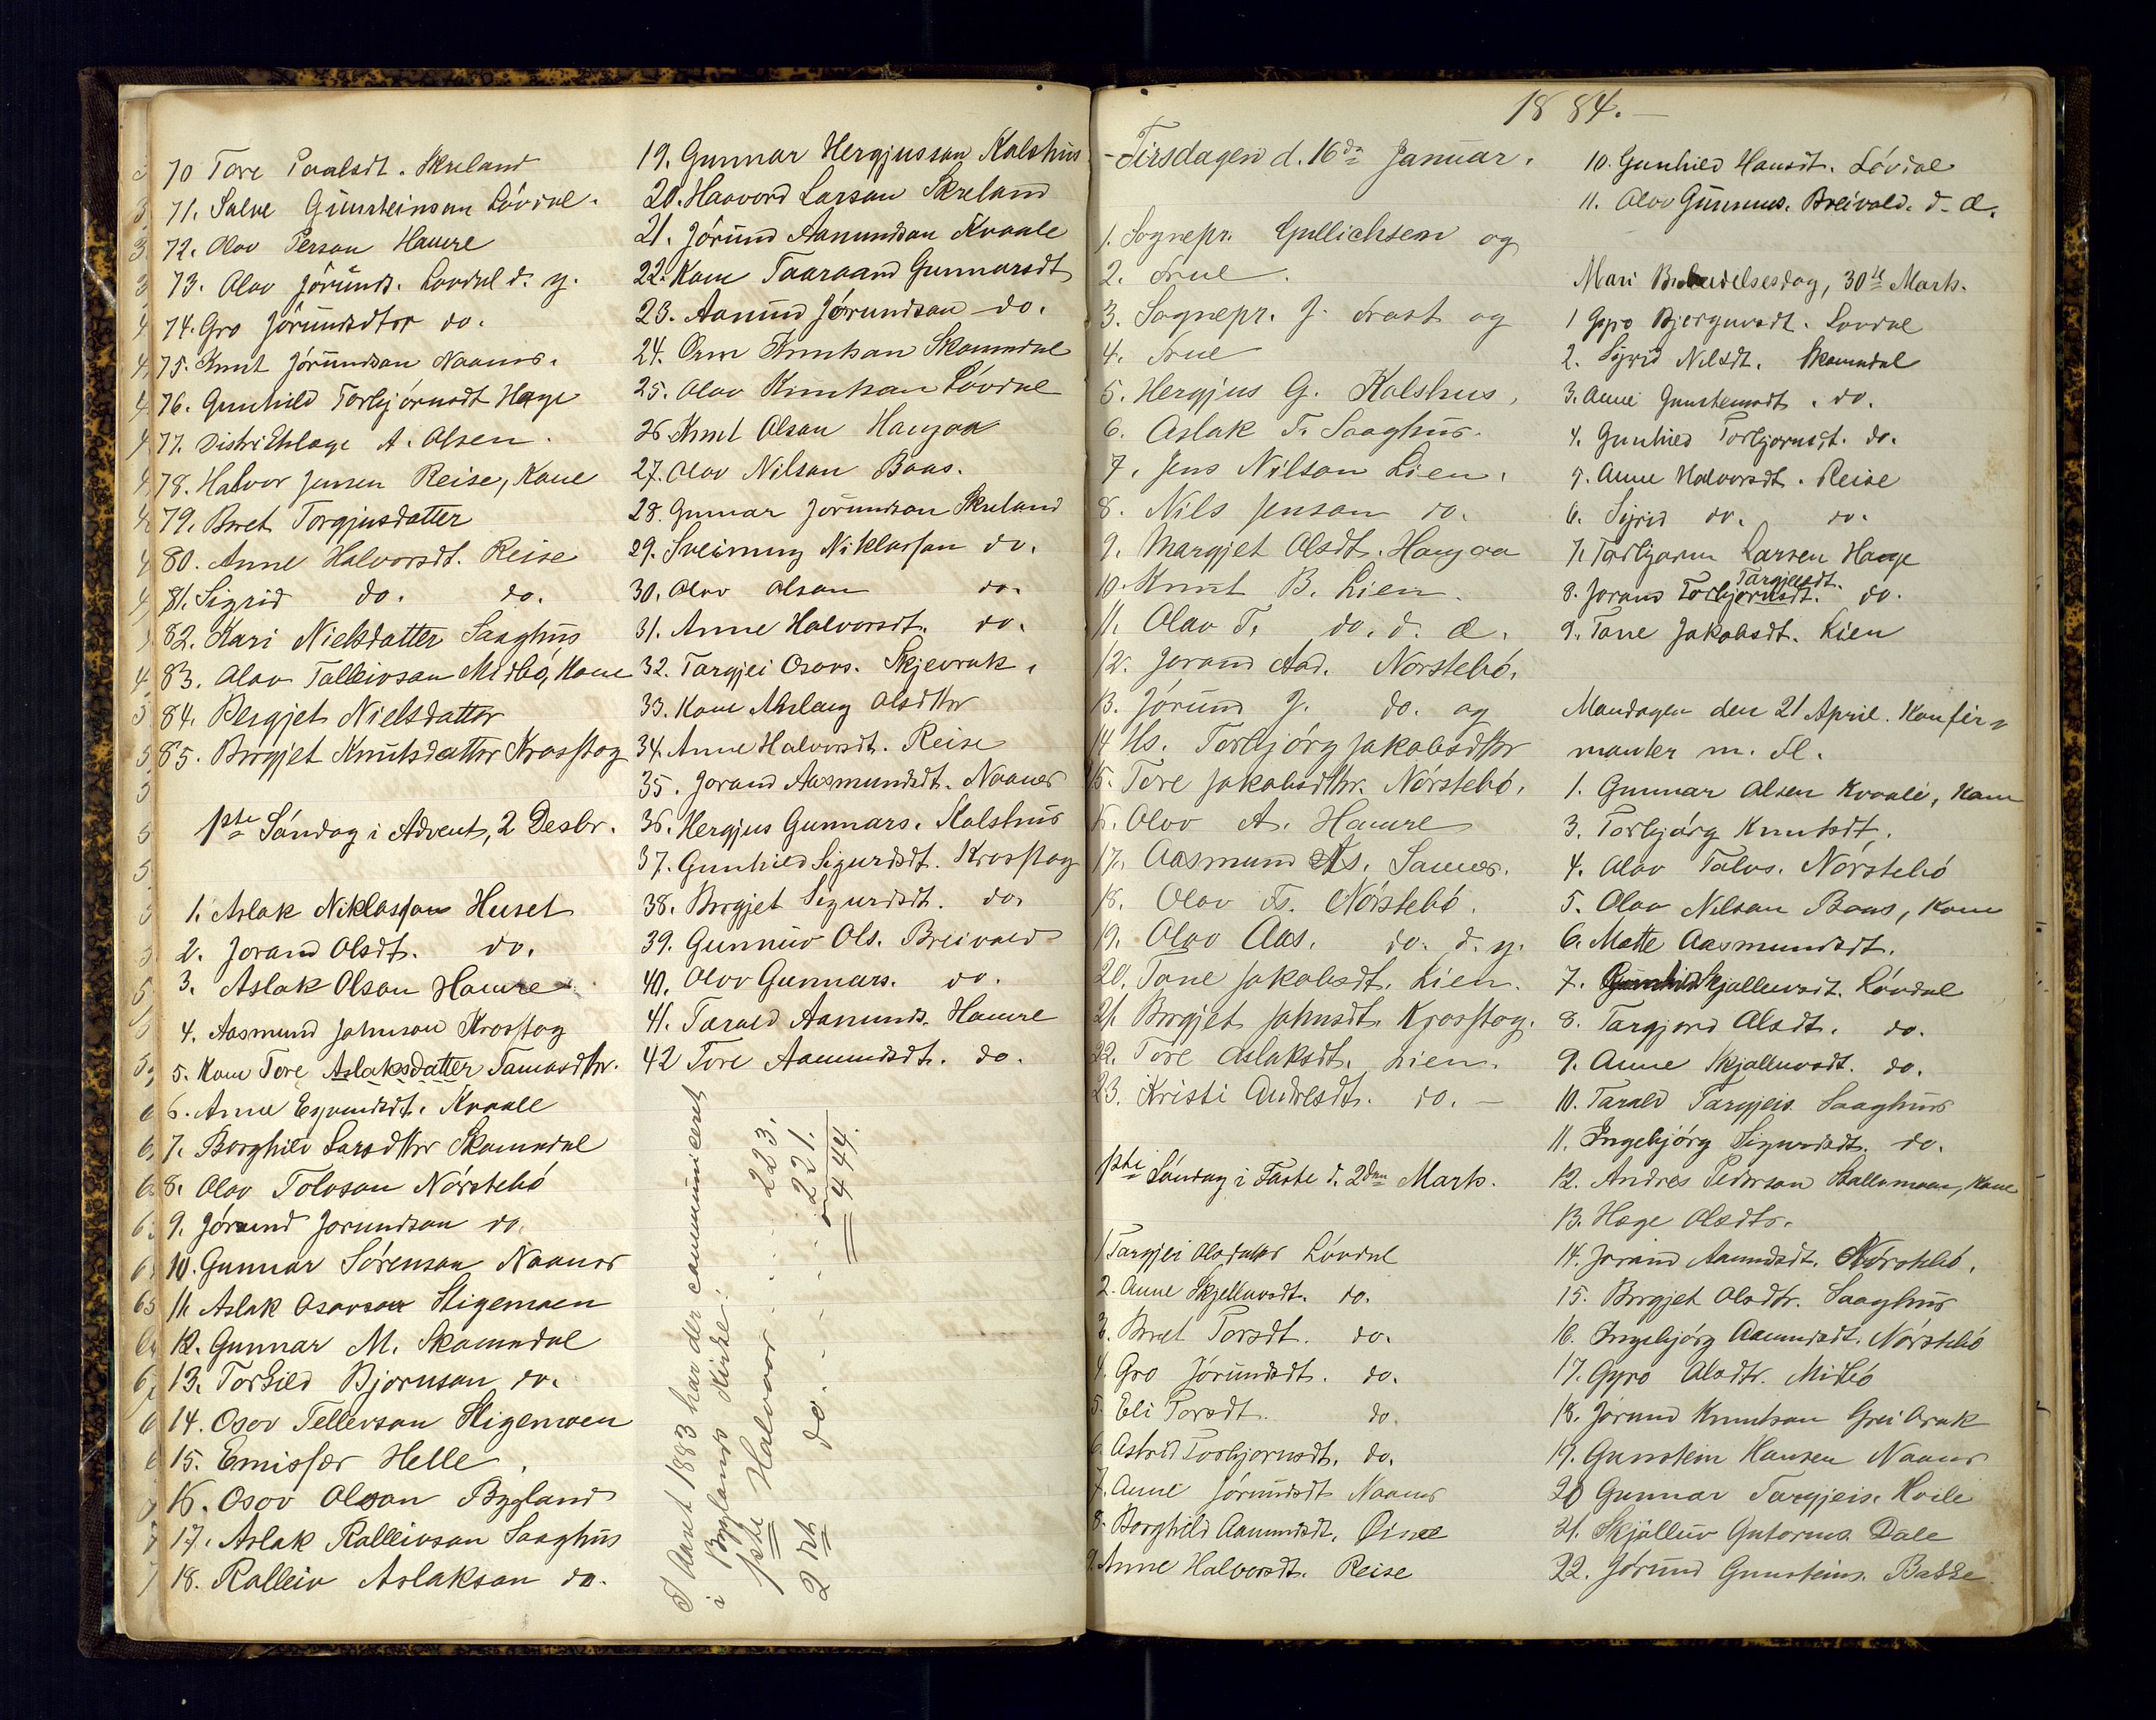 70 Tore Paalsdt. Skreland
71. Salve Gunsteinson Lövdal.
72. Olav Person Hamre
73. Olav Jörunds. Lovdal d. y.
74. Gro Jörundsdtor do.
75. Knut Jörundson Naanes.
76. Gunhild Torbjörnsdt Hage
77. Distriktslæge A. Olsen.
78. Halvor Jensen Reise, Kone
79. Beret Torgjusdatter
80. Anne Halvorsdt. Reise
81. Sigrid do. do.
82. Kari Nielsdatter Saaghus
83. Olav Talleivson Midbö, Kone
84. Bergjet Nielsdatter
85. Birgjet Knutsdatter Krosstog
1ste Söndag i Advent, 2 Desbr.
1. Aslak Niklasson Huset
2. Jorand Olsdt. do.
3. Aslak Olson Hamre
4. Aasmund Johnson Krosstog
5. Kone Tore Aslaksdatter Tamasdttr.
6. Anne Eyvindsdt. Kvaale
7. Borghild Larsdttr Skomedal
8. Olav Tolvson Nörstebö
9. Jörund Jorundson do.
10. Gunnar Sörenson Naanes
11. Aslak Osovson Stigemoen
12. Gunnar M. Skomedal
13. Torkild Bjornson do.
14. Osov Tellevson Stigemoen
15. Emissær Helle
16. Osov Olson Bygland
17. Aslak Rolleivson Saaghus
18. Rolleiv Aslakson do.
19. Gunnar Hergjusson Kalshus
20. Haavord Larson Skreland
21. Jörund Aanundson Kvaale
22. Kone Taaraand Gunnarsdt
23. Aanund Jörundson do.
24. Orm Knutson Skomedal
25. Olav Knutson Lövdal
26. Knut Olson Haugaa
27. Olav Nilson Baas.
28. Gunnar Jörundson Skreland
29. Sveinung Niklasson do.
30. Olav Olson do.
31. Anne Halvorsdt. do.
32. Targjei Osovs. Skjevrak.
33. Kone Aslaug Olsdttr
34. Anne Halvorsdt. Reise
35. Jorand Aasmundsdt. Naanes
36. Hergjus Gunnars. Kalshus
37. Gunhild Sigurdsdt. Krosstog
38. Birgjet Sigurdsdt. do.
39. Gunnuv Ols. Breivald
40. Olov Gunnars. do.
41. Tarald Aanunds. Hamre
42 Tore Aanundsdt. do.
I Aaret 1883 har der communiceret
i Byglands Kirke:
1ste Halvaar . . . 223.
2det do. . . . 221.
444.
1884.
Tirsdagen d. 16de Januar.
1. Sognepr. Gullichsen og
2. Frue.
3. Sognepr. J. Frost og
4. Frue
5. Hergjus G. Kalshus,
6. Aslak T. Saaghus.
7. Jens Nilson Lien.
8. Nils Jenson do.
9. Margjet Olsdt. Haugaa
10. Knut B. Lien.
11. Olav T. do. d. æ.
12. Jorand Aad. Norstebö.
13. Jörund J. do. og
14 Hs. Torbjörg Jakobsdttr
15. Tore Jakobsdttr. Nörstebö.
16. Olov A. Hamre
17. Aasmund As. Sanes.
18. Olov Ts. Nörstebö.
19. Olav Aas. do. d. y.
20. Tone Jakobsdt. Lien.
21. Birgjet Johnsdt. Krosstog.
22. Tore Aslaksdt. Lien.
23. Kristi Andresdt. do. —
1ste Söndag i Faste d. 2den Marts.
1 Targjei Olsdatter Lövdal
2. Anne Skjellevsdt. do.
3. Beret Torsdt. do.
4. Gro Jörundsdt. do.
5. Eli Torsdt. do.
6. Astrid Torbjornsdt. do.
7. Anne Jörundsdt Naanes
8. Borghild Aanundsdt.
9. Anne Halvorsdt. Reise
10. Gunhild Hansdt. Lövdal
11. Olov Gunnuvs. Breivald. d. æ.
Mari Bebudelsesdag, 30te Marts.
1 Gyro Bjergnvsdt. Lovdal
2. Sigrid Nilsdt. Skomedal
3. Anne Gunsteinsdt. do.
4. Gunhild Torbjornsdt. do.
5. Anne Halvorsdt. Reise
6. Sigrid do. do.
7. Torbjorn Larsen Hage
Targjeisdt.
8. Jorand Torbjornsdt. do.
9. Tone Jakobsdt. Lien
Mandagen den 21 April. Konfir-
manter m. Fl.
1. Gunnar Olsen Kvaale, Kone
3. Torbjörg Knutsdt.
4. Olav Talvs. Nörstebö
5. Olav Nilson Baas, Kone
6. Matte Aasmundsdt.
7. Skjallevsdt. Lövdal
8. Targjerd Olsdt. do.
9. Anne Skjallevsdt. do.
10. Tarald Targjeis. Saaghus
11. Ingebjörg Sigurdsdt. do.
12. Andres Pederson Stallemoen, Kone
13. Hæge Olsdtr.
14. Jorand Aanundsdt. Nörstebö.
15. Birgjet Olsdtr. Saaghus
16. Ingebjörg Aanundsdt. Nörstebö
17. Gyro Olsdtr. Midbö
18. Jörund Knutson
19. Gunstein Hansen Naanes
20 Gunnar Targjeis. Hvile
21. Skjölluv Gutorms. Dale
22. Jörund Gunsteins. Bakke